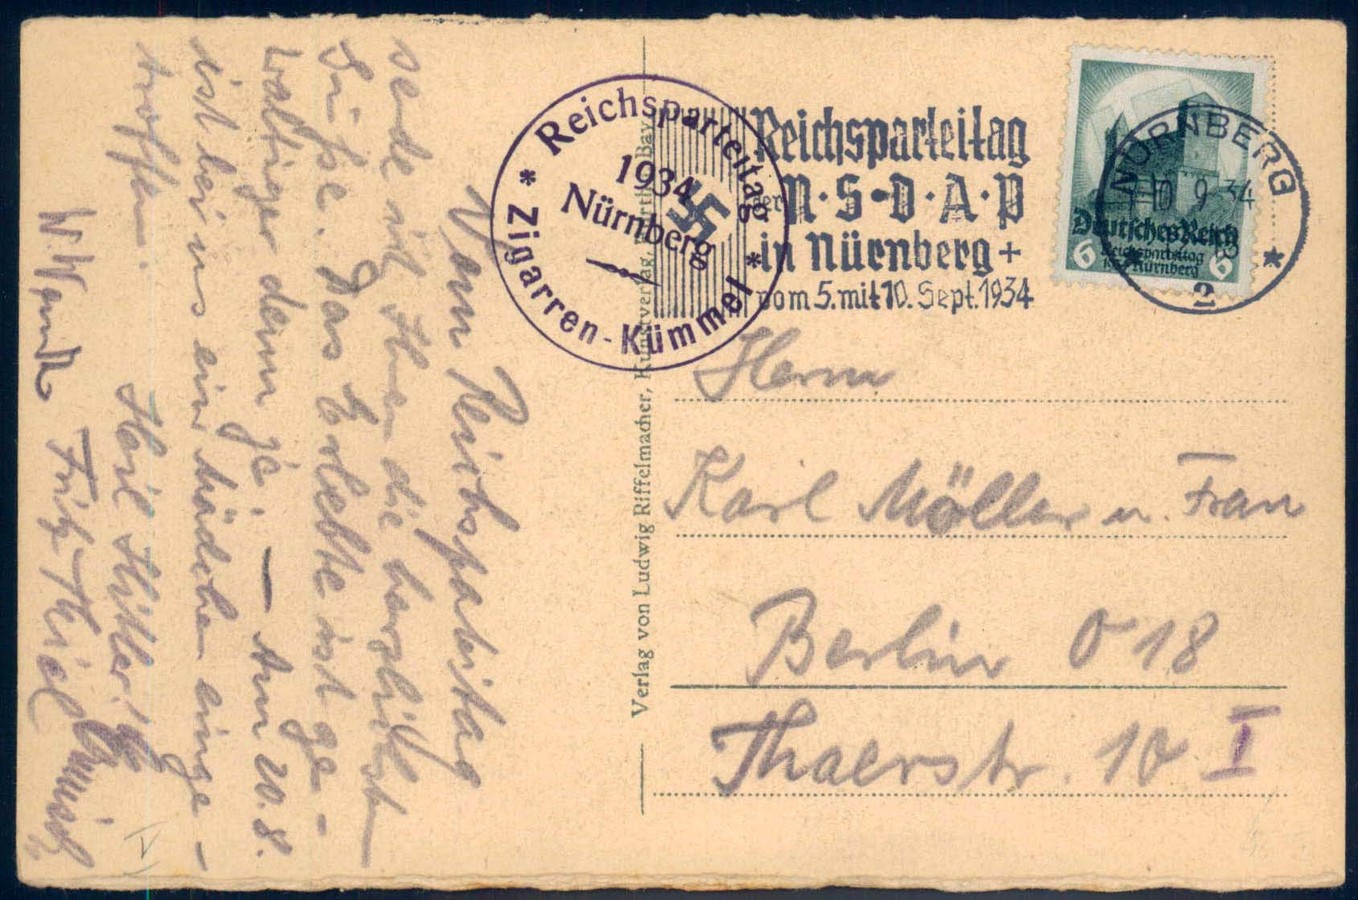 Vom Reichsparteitag
sende ich Ihnen die herzlichsten
Grüße. Das Erlebte ist ge-
waltiger denn je. — Am 20.8.
ist bei uns ein Mädchen einge-
troffen.
Heil Hitler!
Fritz Thiel
Reichsparteitag
1934
Nürnberg
* Zigarren-Kümmel *
Reichsparteitag
der N·S·D·A·P
in Nürnberg +
vom 5. mit 10. Sept. 1934
NÜRNBERG
10 9 34
2
Deutsches Reich
6 Reichsparteitag 6
in Nürnberg
Verlag von Ludwig Riffelmacher, Kunstverlag,
Herrn
Karl Möller u. Frau
Berlin O 18
Thaerstr. 10 I